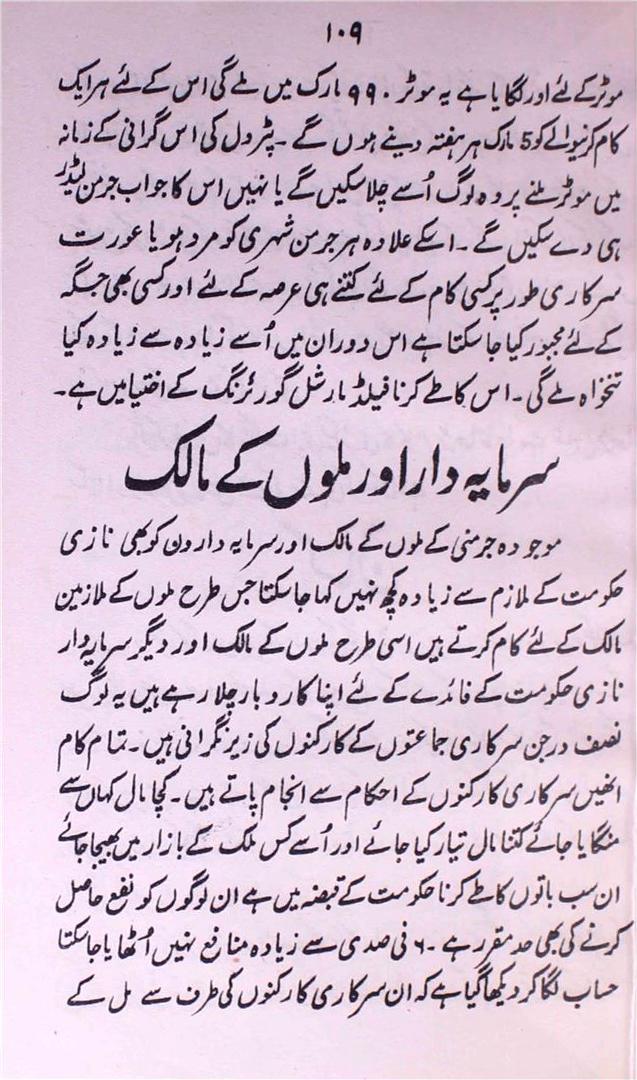 ۱۰۹
موٹر کے لئے اور لگایا ہے یہ موٹر ۹۹۰ مارک میں ملے گی اس کے لئے ہر ایک
کام کرنیوالے کو 5 مارک ہر ہفتہ دینے ہوں گے ۔ پٹرول کی اس گرانی کے زمانہ
میں موٹر ملنے پر وہ لوگ اُسے چلا سکیں گے یا نہیں اس کا جواب جرمن لیڈر
ہی دے سکیں گے ۔ اسکے علاوہ ہر جرمن شہری کو مرد ہو یا عورت
سرکاری طور پر کسی کام کے لئے کتنے ہی عرصہ کے لئے اور کسی بھی جگہ
کے لئے مجبور کیا جا سکتا ہے اس دوران میں اُسے زیادہ سے زیادہ کیا
تنخواہ ملے گی ۔ اس کا طے کرنا فیلڈ مارشل گورئرنگ کے اختیا میں ہے ۔
سرمایہ دار اور ملوں کے مالک
موجودہ جرمنی کے ملوں کے مالک اور سرمایہ داروں کو بھی نازی
حکومت کے ملازم سے زیادہ کچھ نہیں کہا جا سکتا جس طرح ملوں کے ملازمین
مالک کے لئے کام کرتے ہیں اسی طرح ملوں کے مالک اور دیگر سرمایہ دار
نازی حکومت کے فائدے کے لئے اپنا کاروبار چلا رہے ہیں یہ لوگ
نصف درجن سرکاری جماعتوں کے کارکنوں کی زیر نگرانی ہیں ۔ تمام کام
انھیں سرکاری کارکنوں کے احکام سے انجام پاتے ہیں ۔ کچا مال کہاں سے
منگایا جائے کتنا مال تیار کیا جائے اور اُسے کس ملک کے بازار میں بھیجا جائے
ان سب باتوں کا طے کرنا حکومت کے قبضہ میں ہے ان لوگوں کو نفع حاصل
کرنے کی بھی حد مقرر ہے ۔ ۶ فی صدی سے زیادہ منافع نہیں اُٹھایا جا سکتا
حساب لگا کر دیکھا گیا ہے کہ ان سرکاری کارکنوں کی طرف سے مل کے